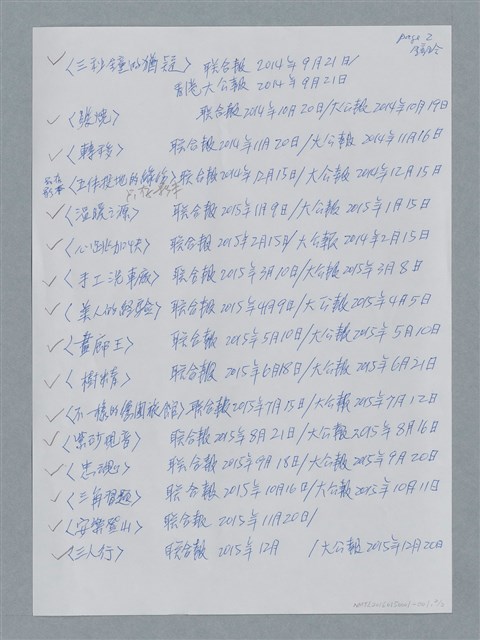 page 2
〈三秒鐘的猶疑〉 联合報 2014年9月21日/
香港大公報 2014年9月21日
联合報2014年10月20日/大公報2014年10月19日
〈轉移〉 联合報 2014年11月20日/大公報 2014年11月16日
联合報2014年12月15日/大公報2014年12月15日
〈溫暖之源〉 联合報 2015年1月9日/大公報 2015年1月15日
〈心跳加4天〉 联合報2015年2月15日/大公報 2014年2月15日
〈手工洗車廠〉 联合報2015年3月10日/大公報2015年3月8日
〈美人的經驗〉 联合報2015年4月9日/大公報2015年4月5日
〈畫廊王〉 联合報 2015年5月10日/大公報 2015年5月10日
〈樹精〉 联合報 2015年6月18日/大公報2015年6月21日
〈不一樣的傳閣旅館〉联合報2015年7月15日/大公報2015年7月12日
联合報2015年8月21日/大公報2015年8月16日
〈忠魂〉 联合報 2015年9月18日/大公報2015年9月20日
〈三角習題〉 联合報 2015年10月16日/大公報2015年10月11日
〈安樂登山〉 联合報 2015年11月20日/
〈三人行〉 联合報 2015年12月 /大公報2015年12月20日